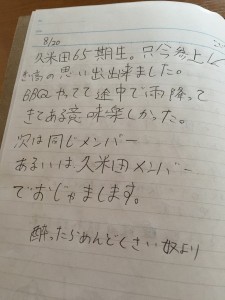 8/20
久米田65期生。只今参上!
最高の思い出出来ました。
BBQやってて途中で雨降って
きてある意味楽しかった。
次は同じメンバー
あるいは久米田メンバー
でおじゃまします。
酔ったらめんどくさい奴より